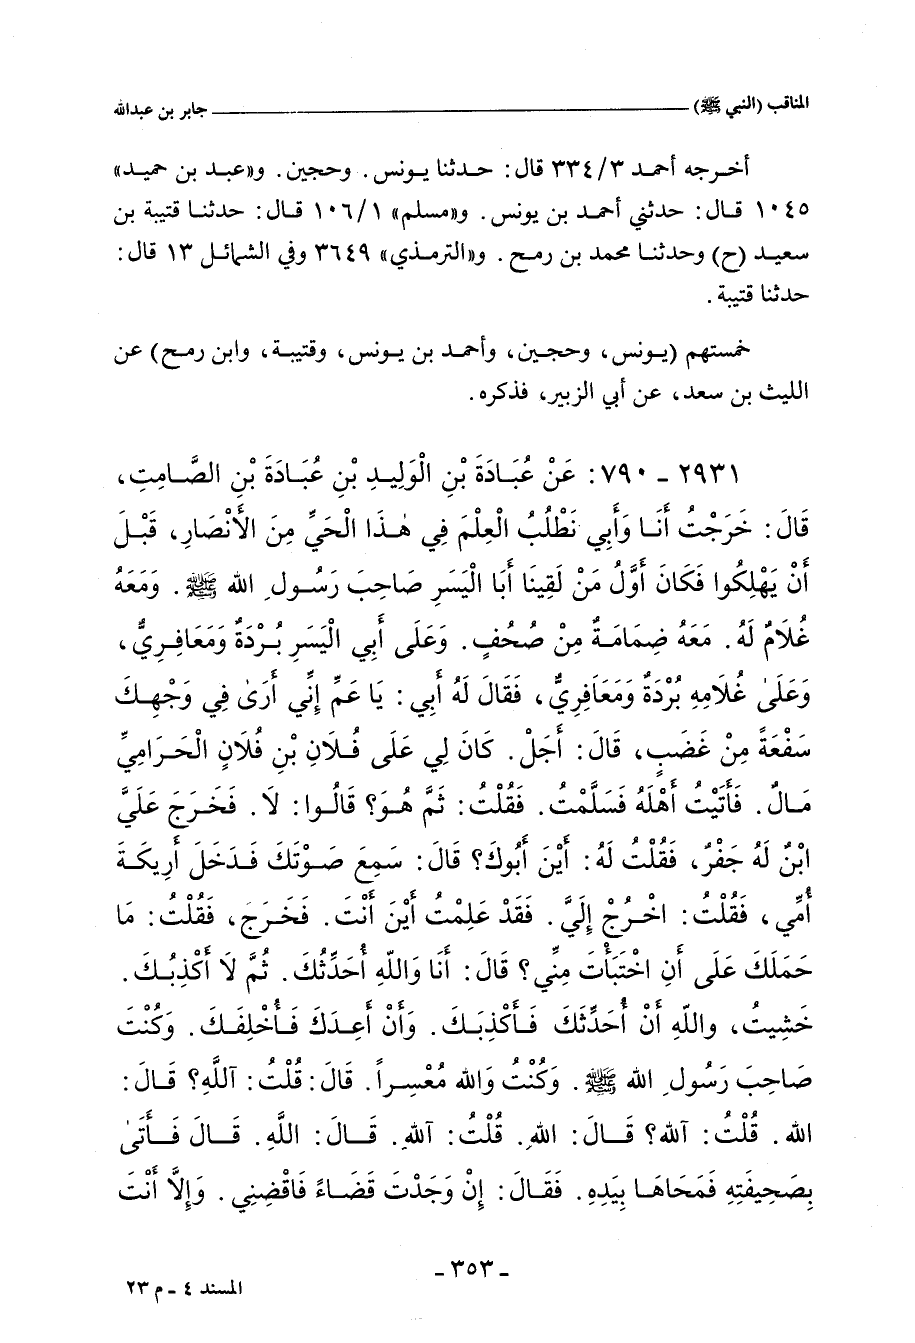 المناقب (النبي ﷺ) ــــــ جابر بن عبدالله
أخرجه أحمد ٣/ ٣٣٤ قال: حدثنا يونس. وحجين. و«عبد بن حميد»
١٠٤٥ قال: حدثني أحمد بن يونس. و«مسلم» ١٠٦/١ قال: حدثنا قتيبة بن
سعيد (ح) وحدثنا محمد بن رمح. و«الترمذي» ٣٦٤٩ وفي الشمائل ١٣ قال:
حدثنا قتيبة.
خمستهم (يونس، وحجين، وأحمد بن يونس، وقتيبة، وابن رمح) عن
الليث بن سعد، عن أبي الزبير، فذكره.
٢٩٣١ - ٧٩٠: عَنْ عُبَادَةَ بْنِ الْوَلِيدِ بْنِ عُبَادَةَ بْنِ الصَّامِتِ،
قَالَ: خَرَجْتُ أَنَا وَأَبِي نَطْلُبُ الْعِلْمَ فِي هٰذَا الْحَيِّ مِنَ الأَنْصَارِ، قَبْلَ
أَنْ يَهْلِكُوا فَكَانَ أَوَّلُ مَنْ لَقِينَا أَبَا الْيَسَرِ صَاحِبَ رَسُولِ الله ﷺ. وَمَعَهُ
غُلَامٌ لَهُ. مَعَهُ ضِمَامَةٌ مِنْ صُحُفٍ. وَعَلَى أَبِي الْيَسَرِ بُرْدَةٌ وَمَعَافِرِيٌّ،
وَعَلَىٰ غُلَامِهِ بُرْدَةٌ وَمَعَافِرِيٌّ، فَقَالَ لَهُ أَبِي: يَا عَمِّ إِنِّي أَرَىٰ فِي وَجْهِكَ
سَفْعَةً مِنْ غَضَبٍ، قَالَ: أَجَلْ. كَانَ لِي عَلَى فُلَانِ بْنِ فُلَانٍ الْحَرَامِيِّ
مَالٌ. فَأَتَيْتُ أَهْلَهُ فَسَلَّمْتُ. فَقُلْتُ: ثَمَّ هُوَ؟ قَالُوا: لَا. فَخَرَجَ عَلَيَّ
ابْنٌ لَهُ جَفْرٌ، فَقُلْتُ لَهُ: أَيْنَ أَبُوكَ؟ قَالَ: سَمِعَ صَوْتَكَ فَدَخَلَ أَرِيكَةَ
أُمِّي، فَقُلْتُ: اخْرُجْ إِلَيَّ. فَقَدْ عَلِمْتُ أَيْنَ أَنْتَ. فَخَرَجَ، فَقُلْتُ: مَا
حَمَلَكَ عَلَى أَنِ اخْتَبَأْتَ مِنِّي؟ قَالَ: أَنَا وَاللّهِ أُحَدِّثُكَ. ثُمَّ لَا أَكْذِبُكَ.
خَشِيتُ، واللّهِ أَنْ أُحَدِّثَكَ فَأَكْذِبَكَ. وَأَنْ أَعِدَكَ فَأُخْلِفَكَ. وَكُنْتَ
صَاحِبَ رَسُولِ الله ﷺ. وَكُنْتُ وَالله مُعْسِراً. قَالَ: قُلْتُ: آللَّهِ؟ قَالَ:
الله. قُلْتُ: آلله؟ قَالَ: اللهِ. قُلْتُ: آللهِ. قَالَ: اللَّهِ. قَالَ فَأَتَىٰ
بِصَحِيفَتِهِ فَمَحَاهَا بِيَدِهِ. فَقَالَ: إِنْ وَجَدْتَ قَضَاءً فَاقْضِنِي. وَإِلَّا أَنْتَ
- ٣٥٣ -
المسند ٤ - م ٢٣